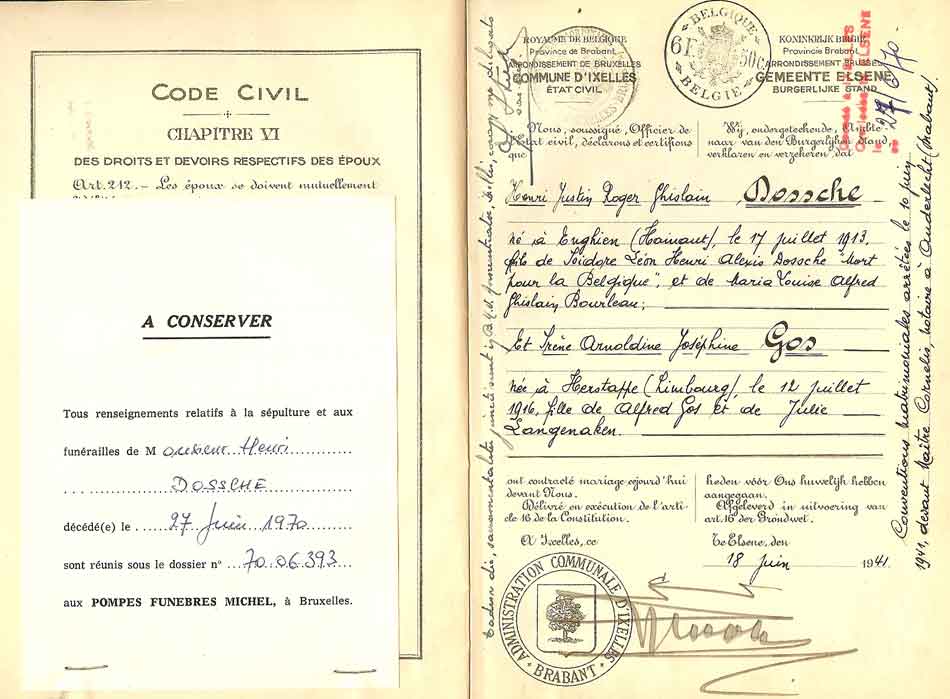 CODE CIVIL
CHAPITRE VI
DES DROITS ET DEVOIRS RESPECTIFS DES ÉPOUX
Art. 212. — Les époux se doivent mutuellement
A CONSERVER
Tous renseignements relatifs à la sépulture et aux
funérailles de M onsieur Henri
DOSSCHE
décédé(e) le 27 Juin 1970
sont réunis sous le dossier n° 70.06.393
aux POMPES FUNEBRES MICHEL, à Bruxelles.
ROYAUME DE BELGIQUE
Province de Brabant
ARRONDISSEMENT DE BRUXELLES
COMMUNE D'IXELLES
ÉTAT CIVIL
BELGIQUE
6F 50c
BELGIE
KONINKRIJK BELGIE
Provincie Brabant
ARRONDISSEMENT BRUSSEL
GEMEENTE ELSENE
BURGERLIJKE STAND
le 27/6/70
Nous, soussigné, Officier de
l'Etat civil, déclarons et certifions
que
Wij, ondergeteekende, Ambte-
naar van den Burgerlijken Stand,
verklaren en verzekeren, dat
Henri Justin Roger Ghislain Dossche
né à Enghien (Hainaut), le 17 juillet 1913,
fils de Isidore Léon Henri Alexis Dossche "Mort
pour la Belgique", et de Maria Louise Alfred
Ghislain Bourleau;
Et Irène Arnoldine Joséphine Gos
née à Herstappe (Limbourg), le 12 juillet
1916, fille de Alfred Gos et de Julie
Langenaken.
ont contracté mariage aujourd'hui
devant Nous.
Délivré en exécution de l'arti-
cle 16 de la Constitution.
A Ixelles, ce
heden vóór Ons huwelijk hebben
aangegaan.
Afgeleverd in uitvoering van
art. 16 der Grondwet.
Te Elsene, den
18 juin 1941.
ADMINISTRATION COMMUNALE D'IXELLES
BRABANT
Conventions matrimoniales arrêtées le 10 juin
1941, devant Maître Cornelis, notaire à Anderlecht (Brabant).